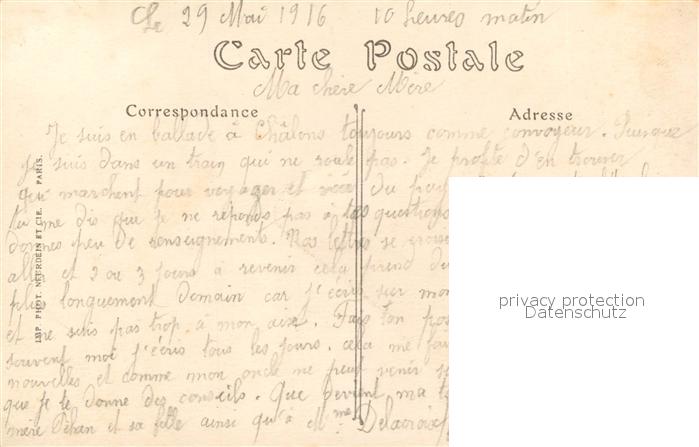 Le 29 Mai 1916 10 heures matin
Carte Postale
Ma chère Mère
Correspondance
Adresse
Je suis en ballade à Châlons toujours comme convoyeur. Puisque
je suis dans un train qui ne roule pas. Je profite d'en trouver
qui marchent pour voyager et voir du pays
tu me dis que je ne réponds pas à tes questions
donnes peu de renseignements. Nos lettres se crois
aller et 2 ou 3 jours à revenir cela prend du
plus longuement demain car j'écris sur mon
et ne suis pas trop à mon aise. Fais ton pos
souvent moi j'écris tous les jours. cela me fai
nouvelles et comme mon oncle ne peut venir
que je te donne des conseils. Que devient ma t
mère et sa fille ainsi qu'à Mme Delacroix
IMP. PHOT. NEURDEIN ET CIE. PARIS.
privacy protection
Datenschutz